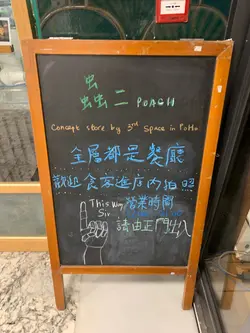 蟲二 POACH
Concept store by 3rd Space in PoHo
全層都是餐廳
歡迎食客進店內拍照
This Way Sir
營業時間
請由正門出入